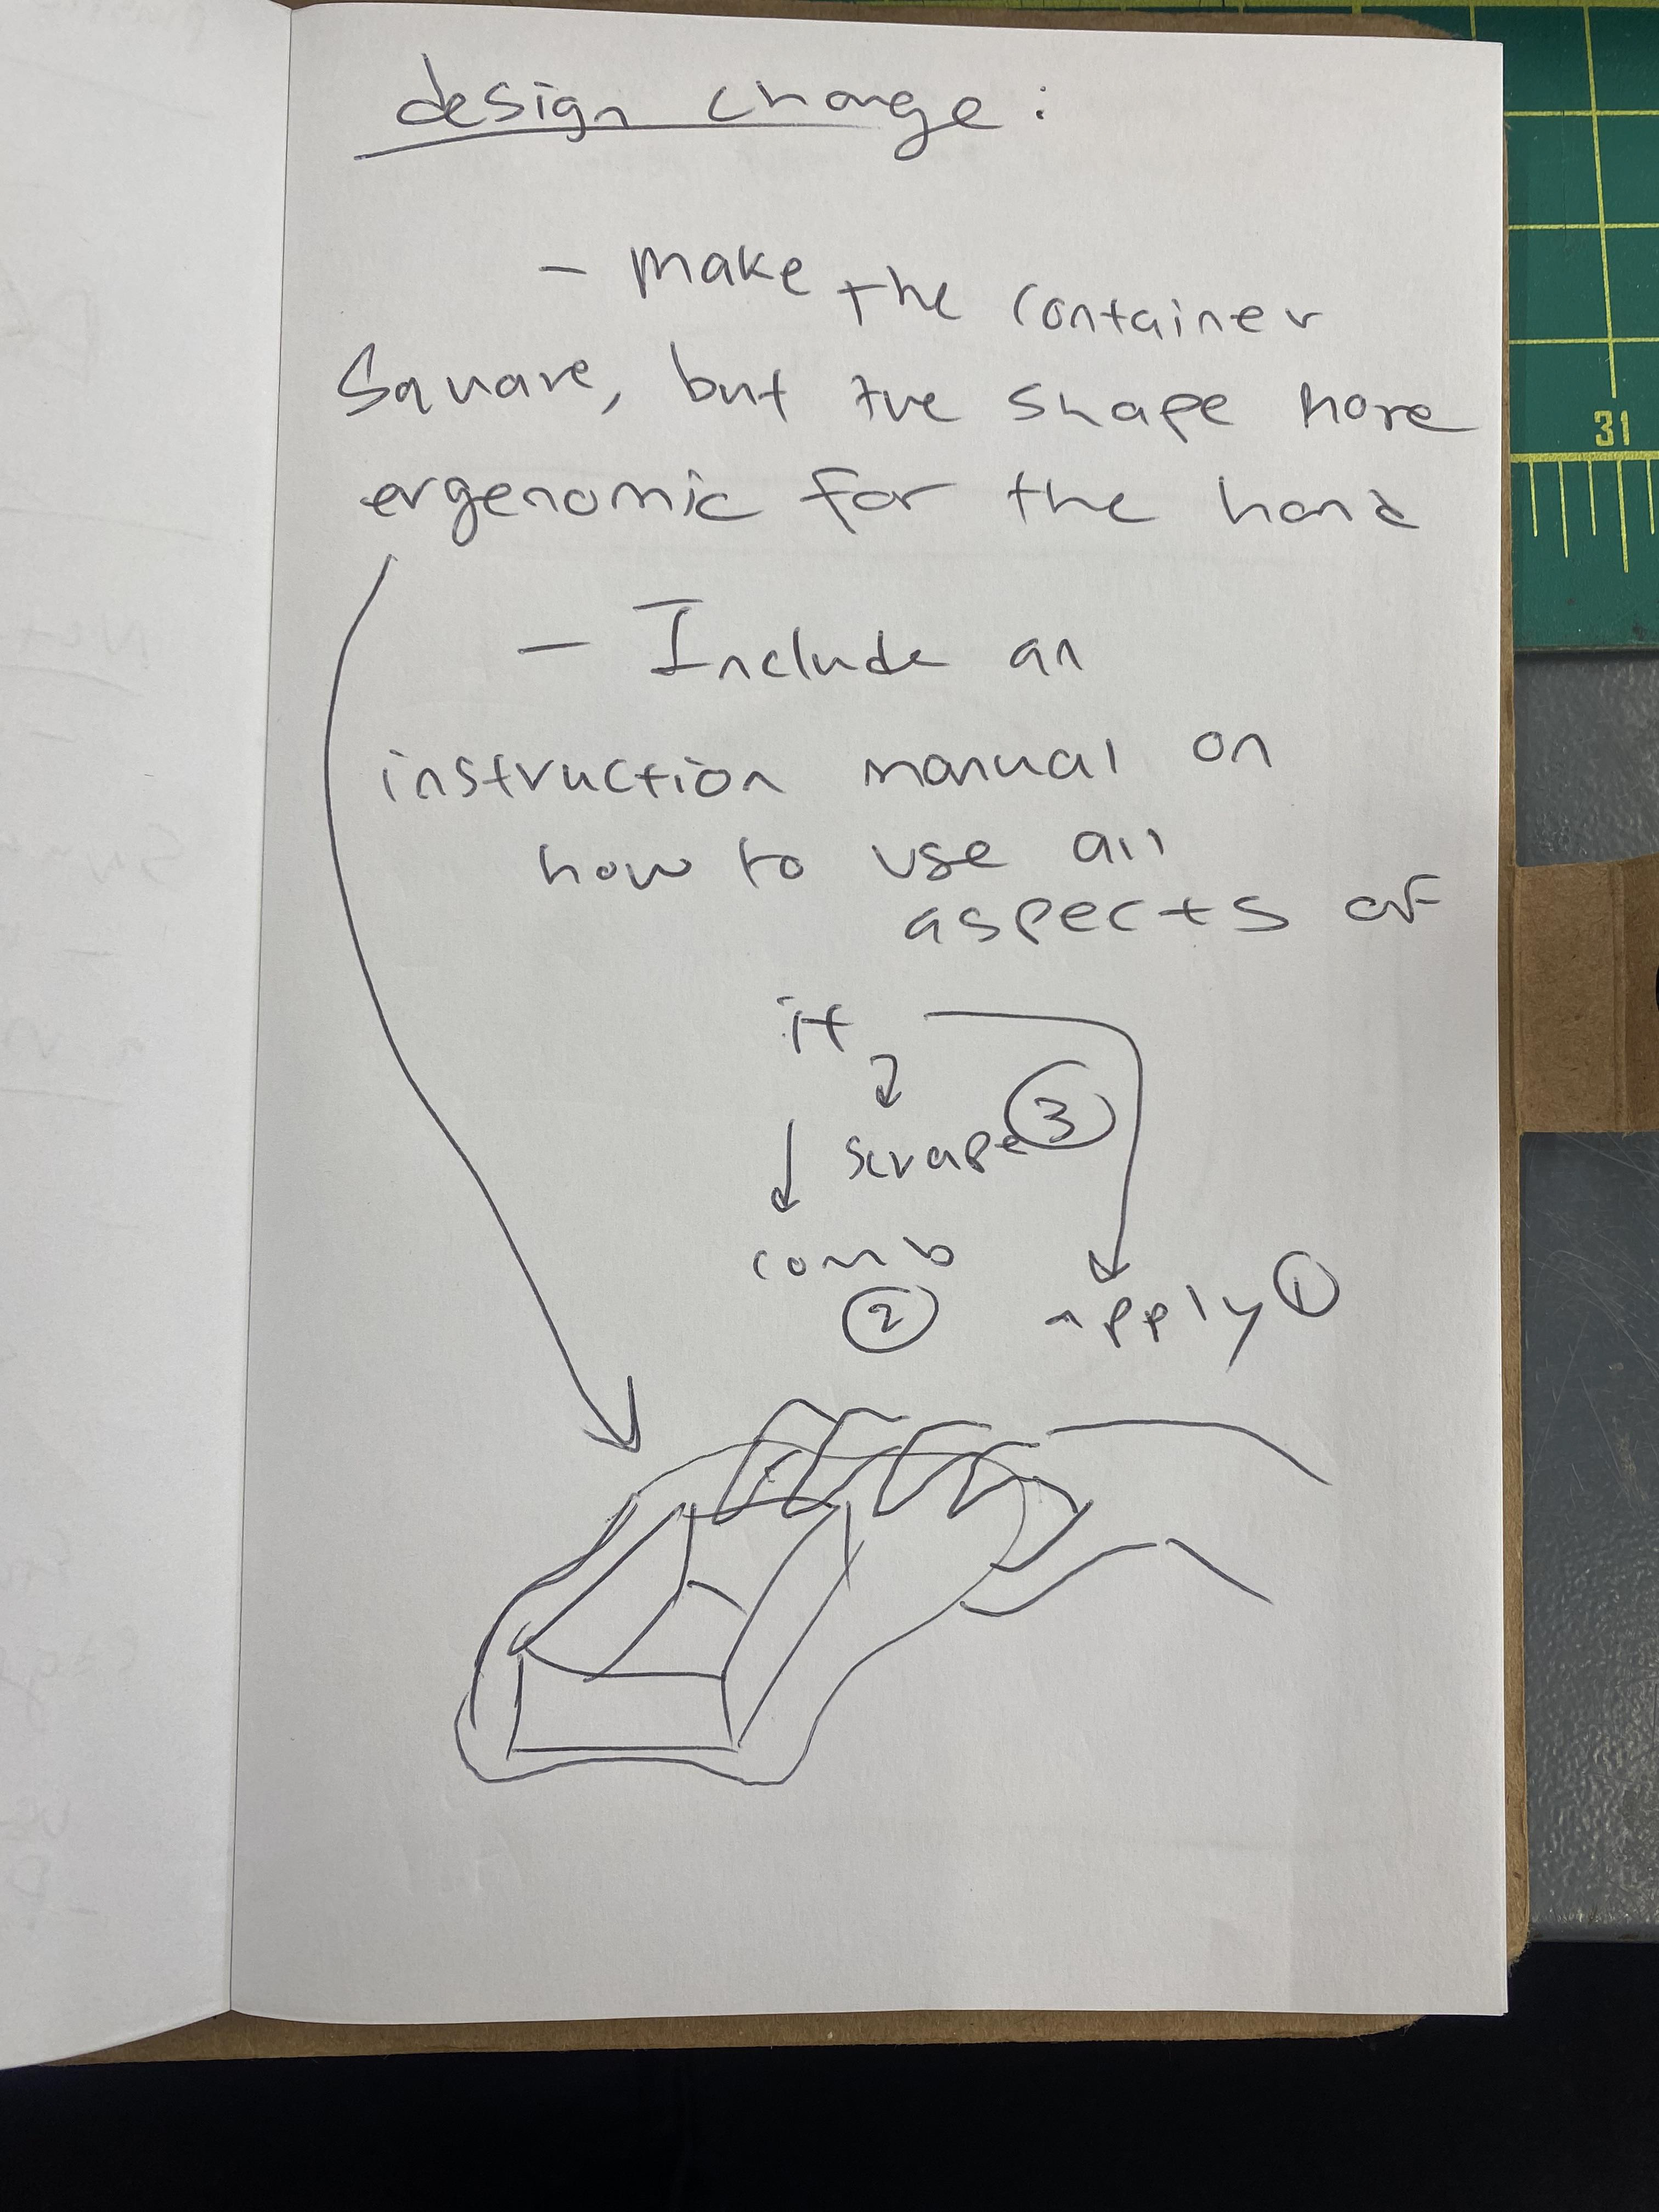 design change:
- make the container
Square, but the shape more
ergenomic for the hand
- Include an
instruction manual on
how to use all
aspects of
it
scrape 3
comb
2
apply 1
31